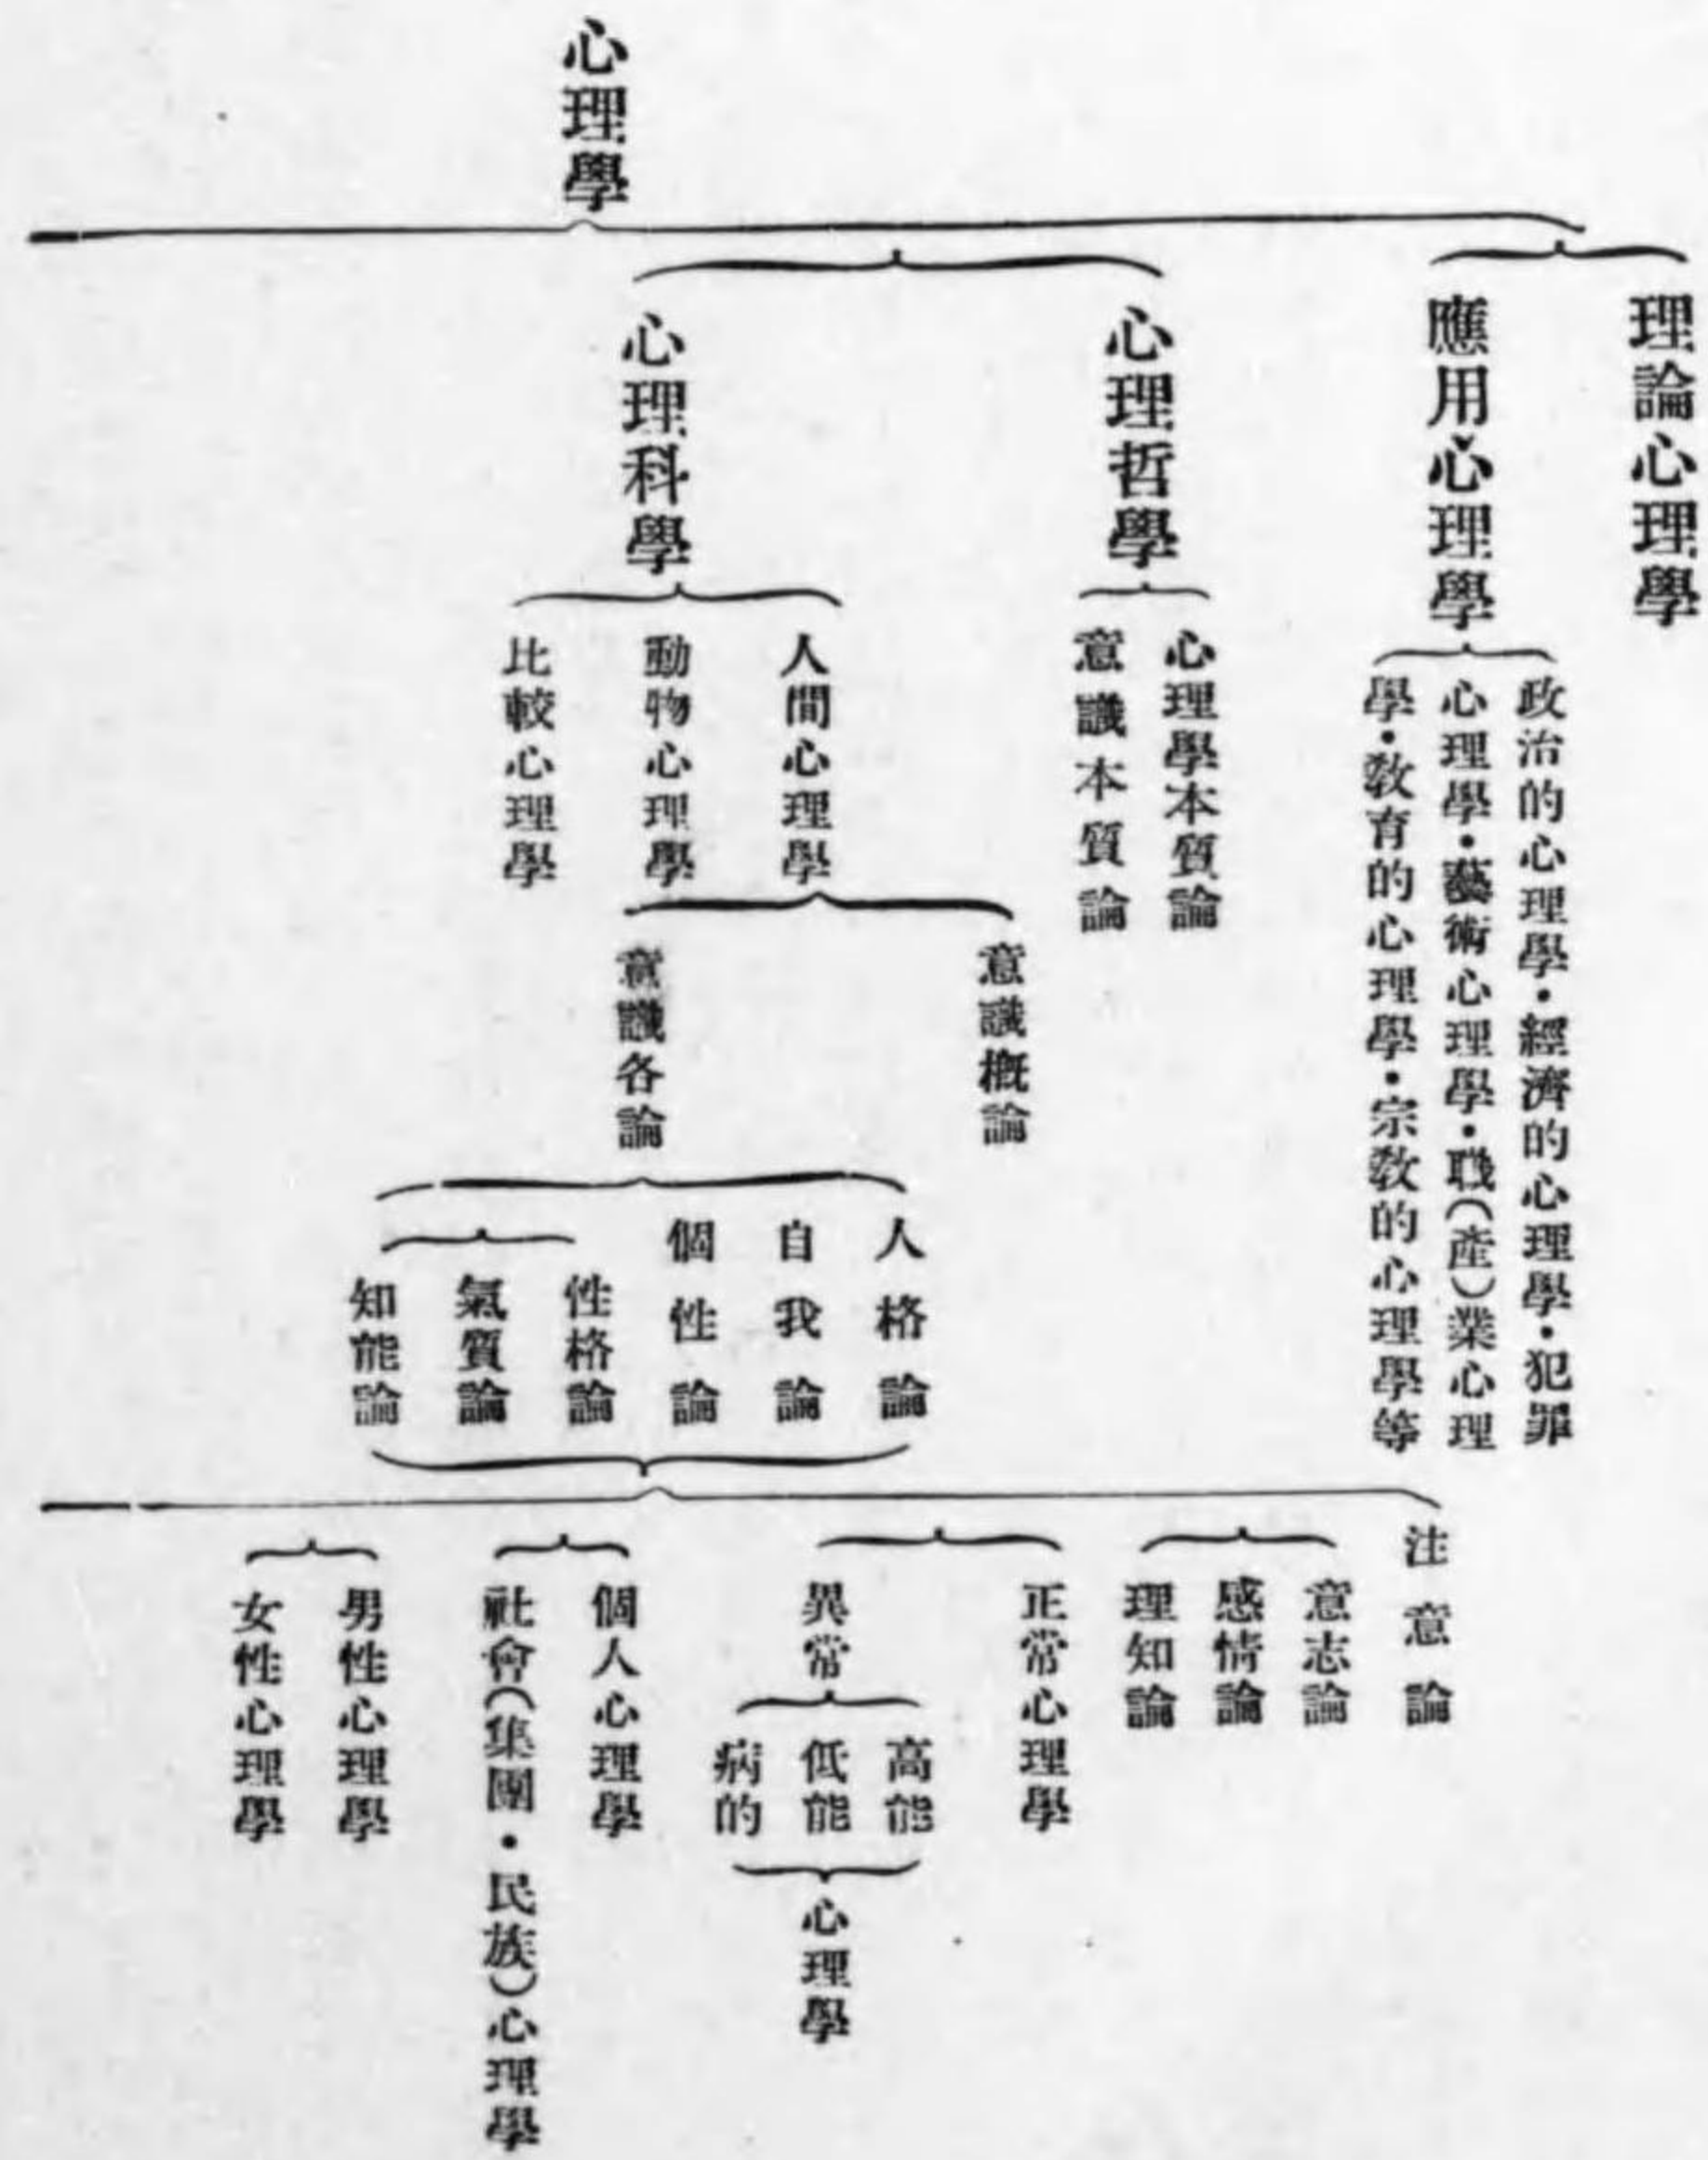 心理學
理論心理學
應用心理學
政治的心理學・經濟的心理學・犯罪
心理學・藝術心理學・職(產)業心理
學・敎育的心理學・宗敎的心理學等
心理哲學
心理學本質論
意識本質論
心理科學
人間心理學
動物心理學
比較心理學
意識槪論
意識各論
人格論
自我論
個性論
性格論
氣質論
知能論
注意論
意志論
感情論
理知論
正常心理學
異常
高能
低能
病的
心理學
個人心理學
社會(集團・民族)心理學
男性心理學
女性心理學